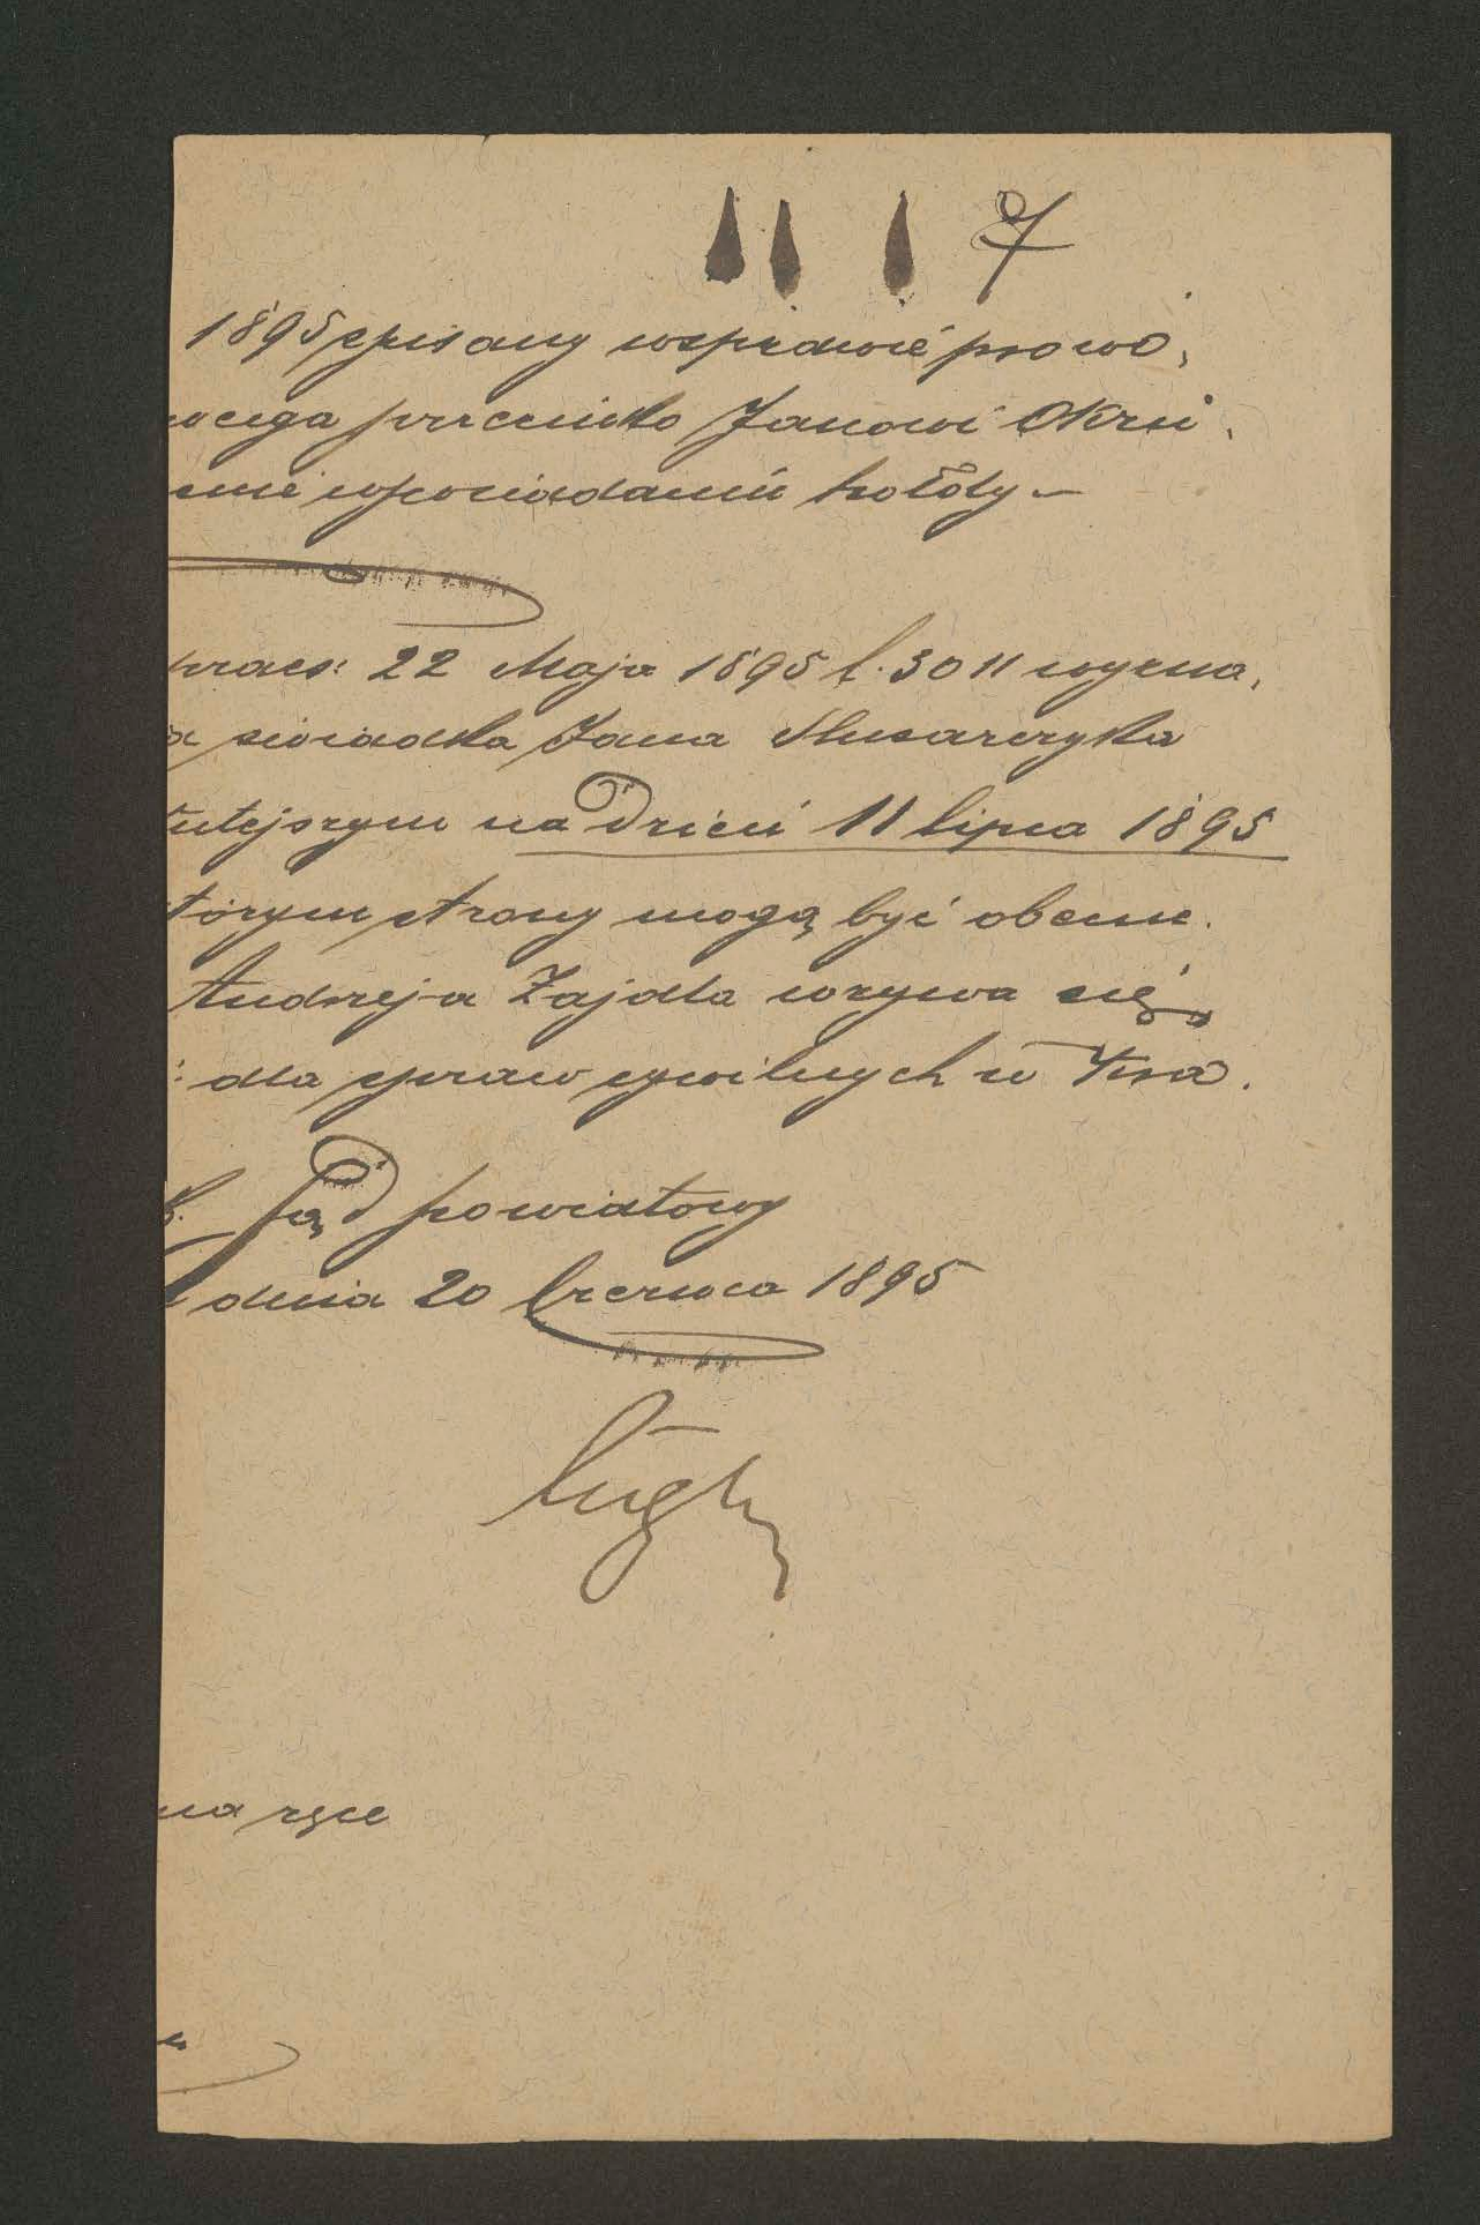 7
1895 spisany wsprawie prowo,
wcega przeciwko Janowi Okrú,
enie wposiadaniu hołdy –
praes: 22 Maja 1895 l. 3011 wyzna,
a świadka Jana Slusarczyka
tutejszym na Dzień 11 lipca 1895
tórym strony mogą być obecne.
Andrzeja Zajdla wzywa się,
: dla spraw cywilnych w Kra.
K. Sąd powiatowy
dnia 20 Czerwca 1895
na ręce